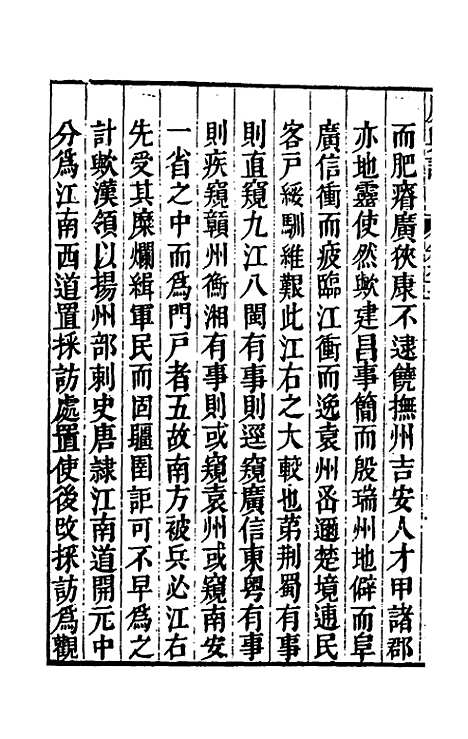 而肥瘠廣狹康不逮饒撫州吉安人才甲諸郡
亦地靈使然歟建昌事簡而殷瑞州地僻而阜
廣信衝而疲臨江衝而逸袁州畨邇楚境逋民
客戸綏馴維艱此江右之大較也苐荆蜀有事
則直窺九江八閩有事則逕窺廣信東粤有事
則疾窺贛州衡湘有事則或窺袁州或窺南安
一省之中而爲門戸者五故南方被兵必江右
先受其糜爛緝軍民而固疆圉詎可不早爲之
計歟漢領以揚州部刺史唐隷江南道開元中
分爲江南西道置採訪處置使後改採訪爲觀